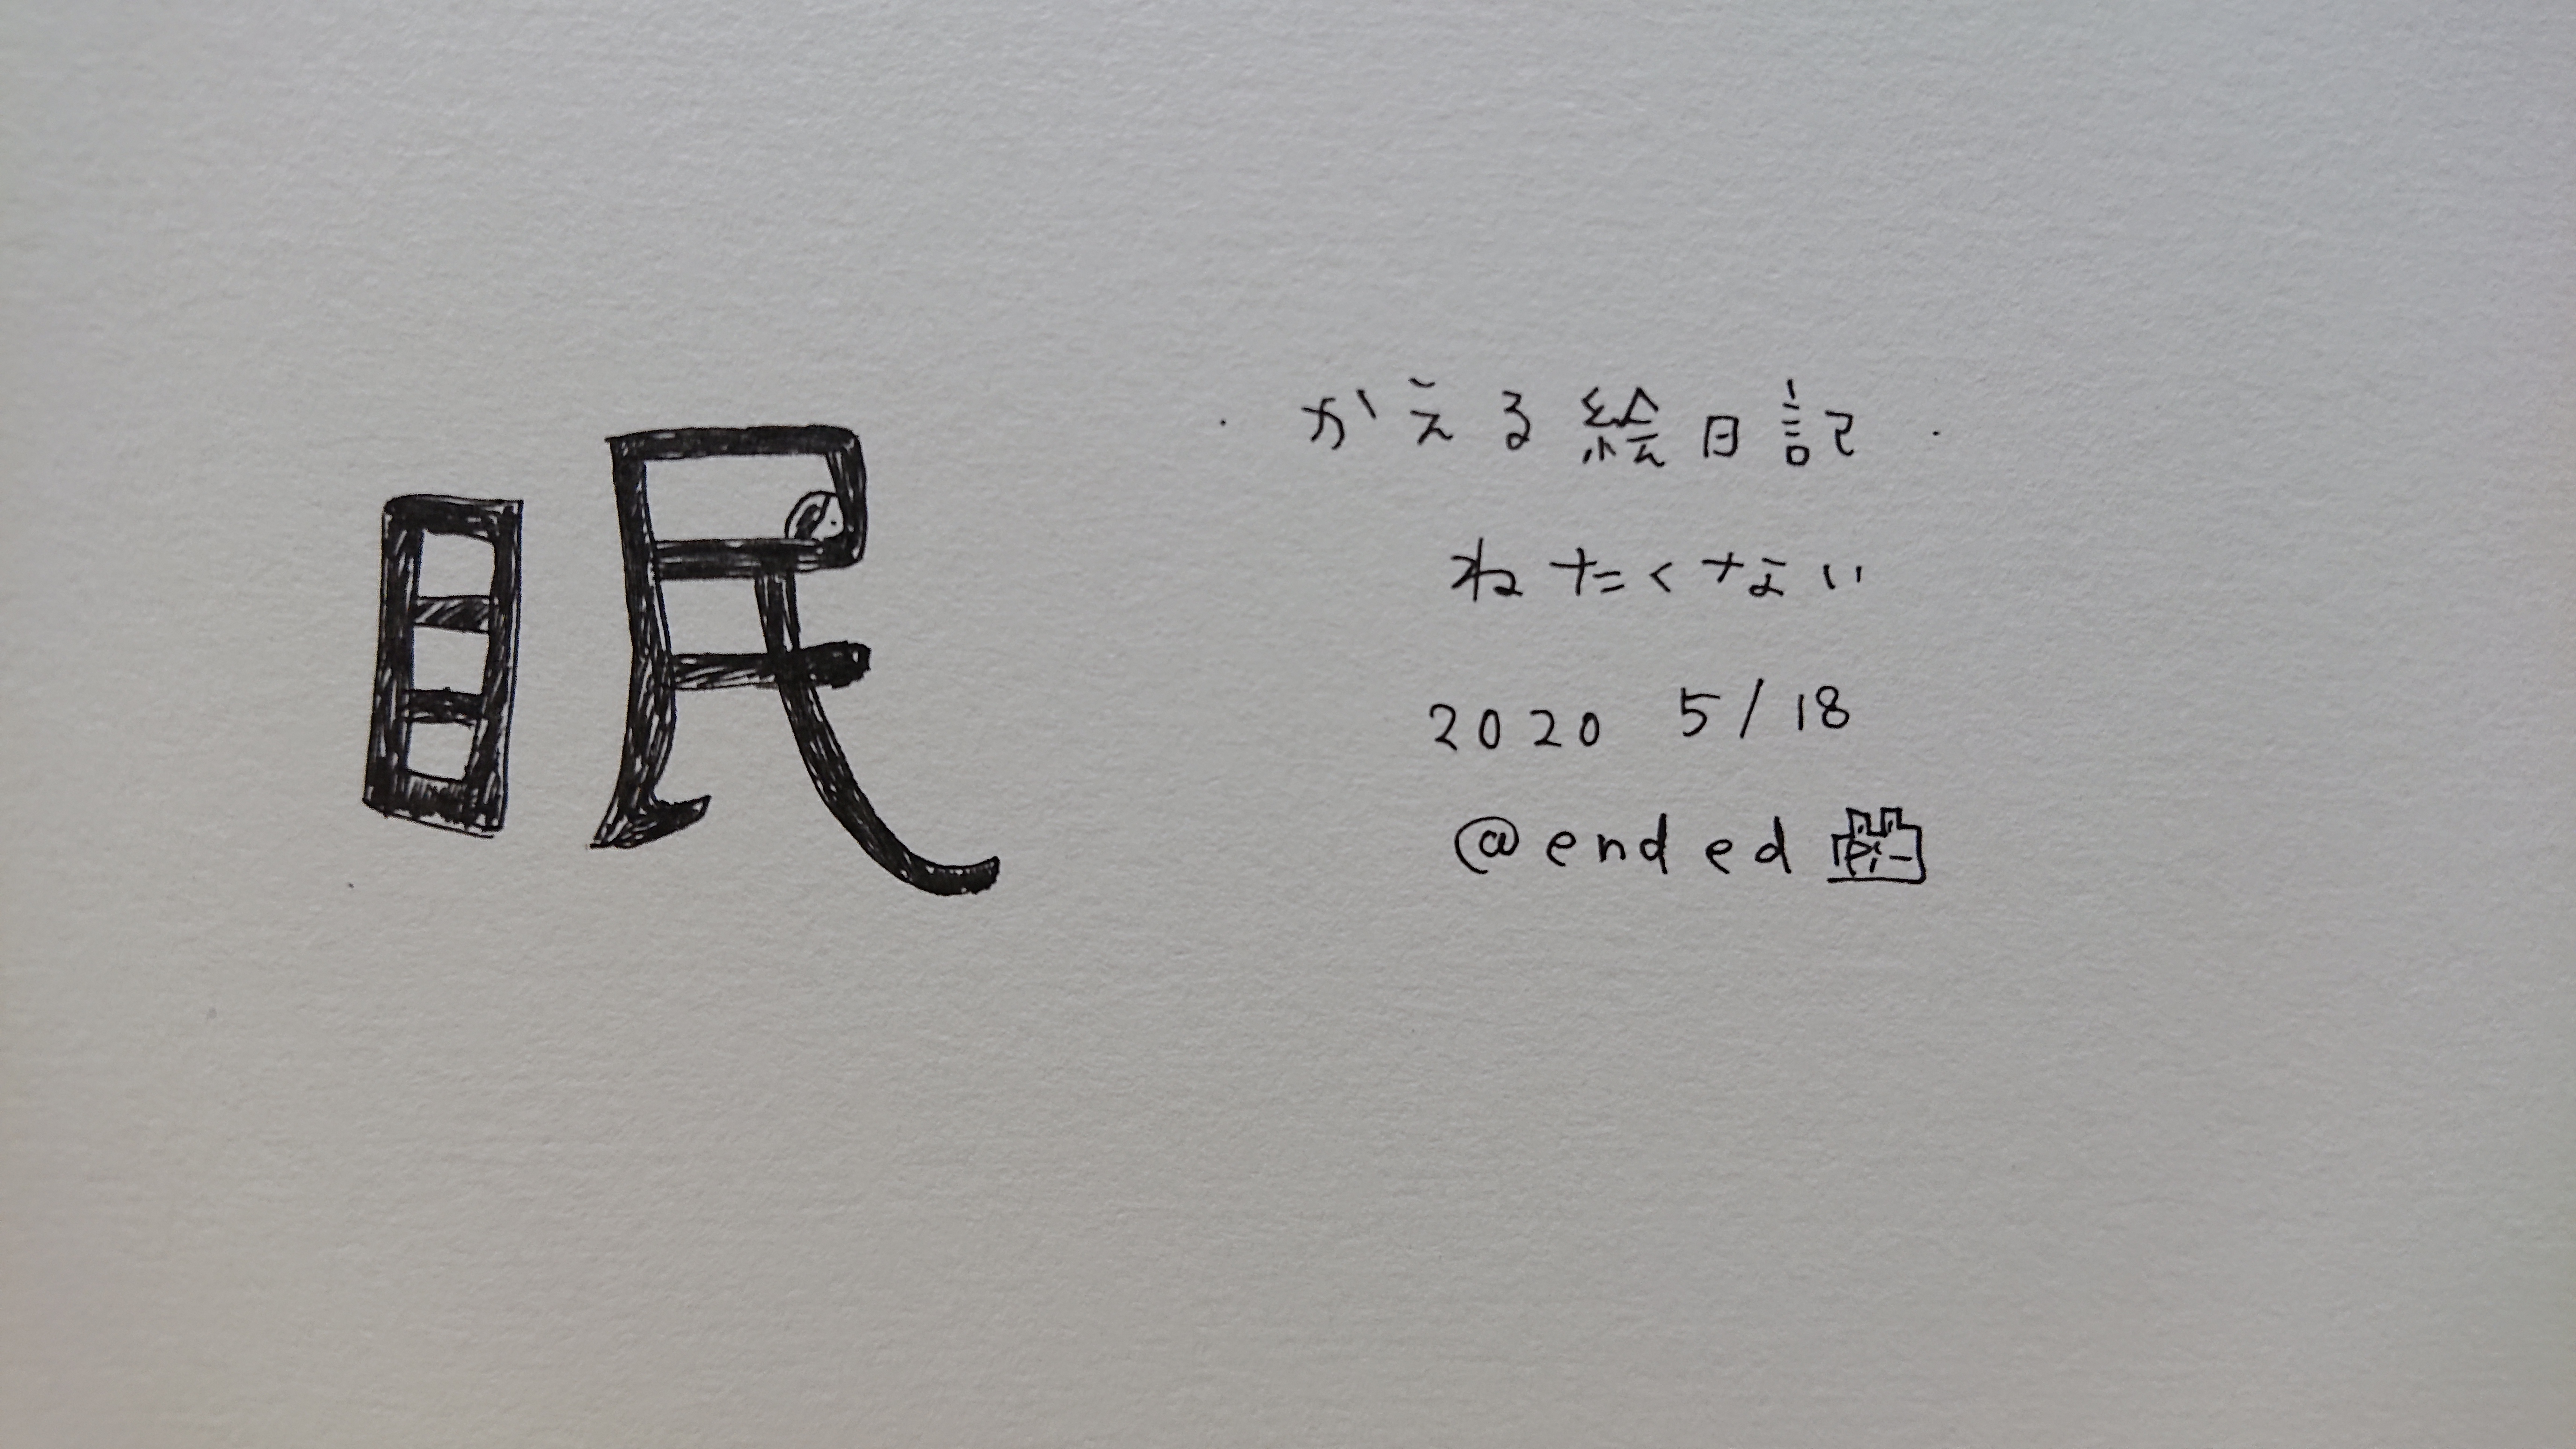 眠
・かえる絵日記・
ねたくない
2020 5/18
@ended凸